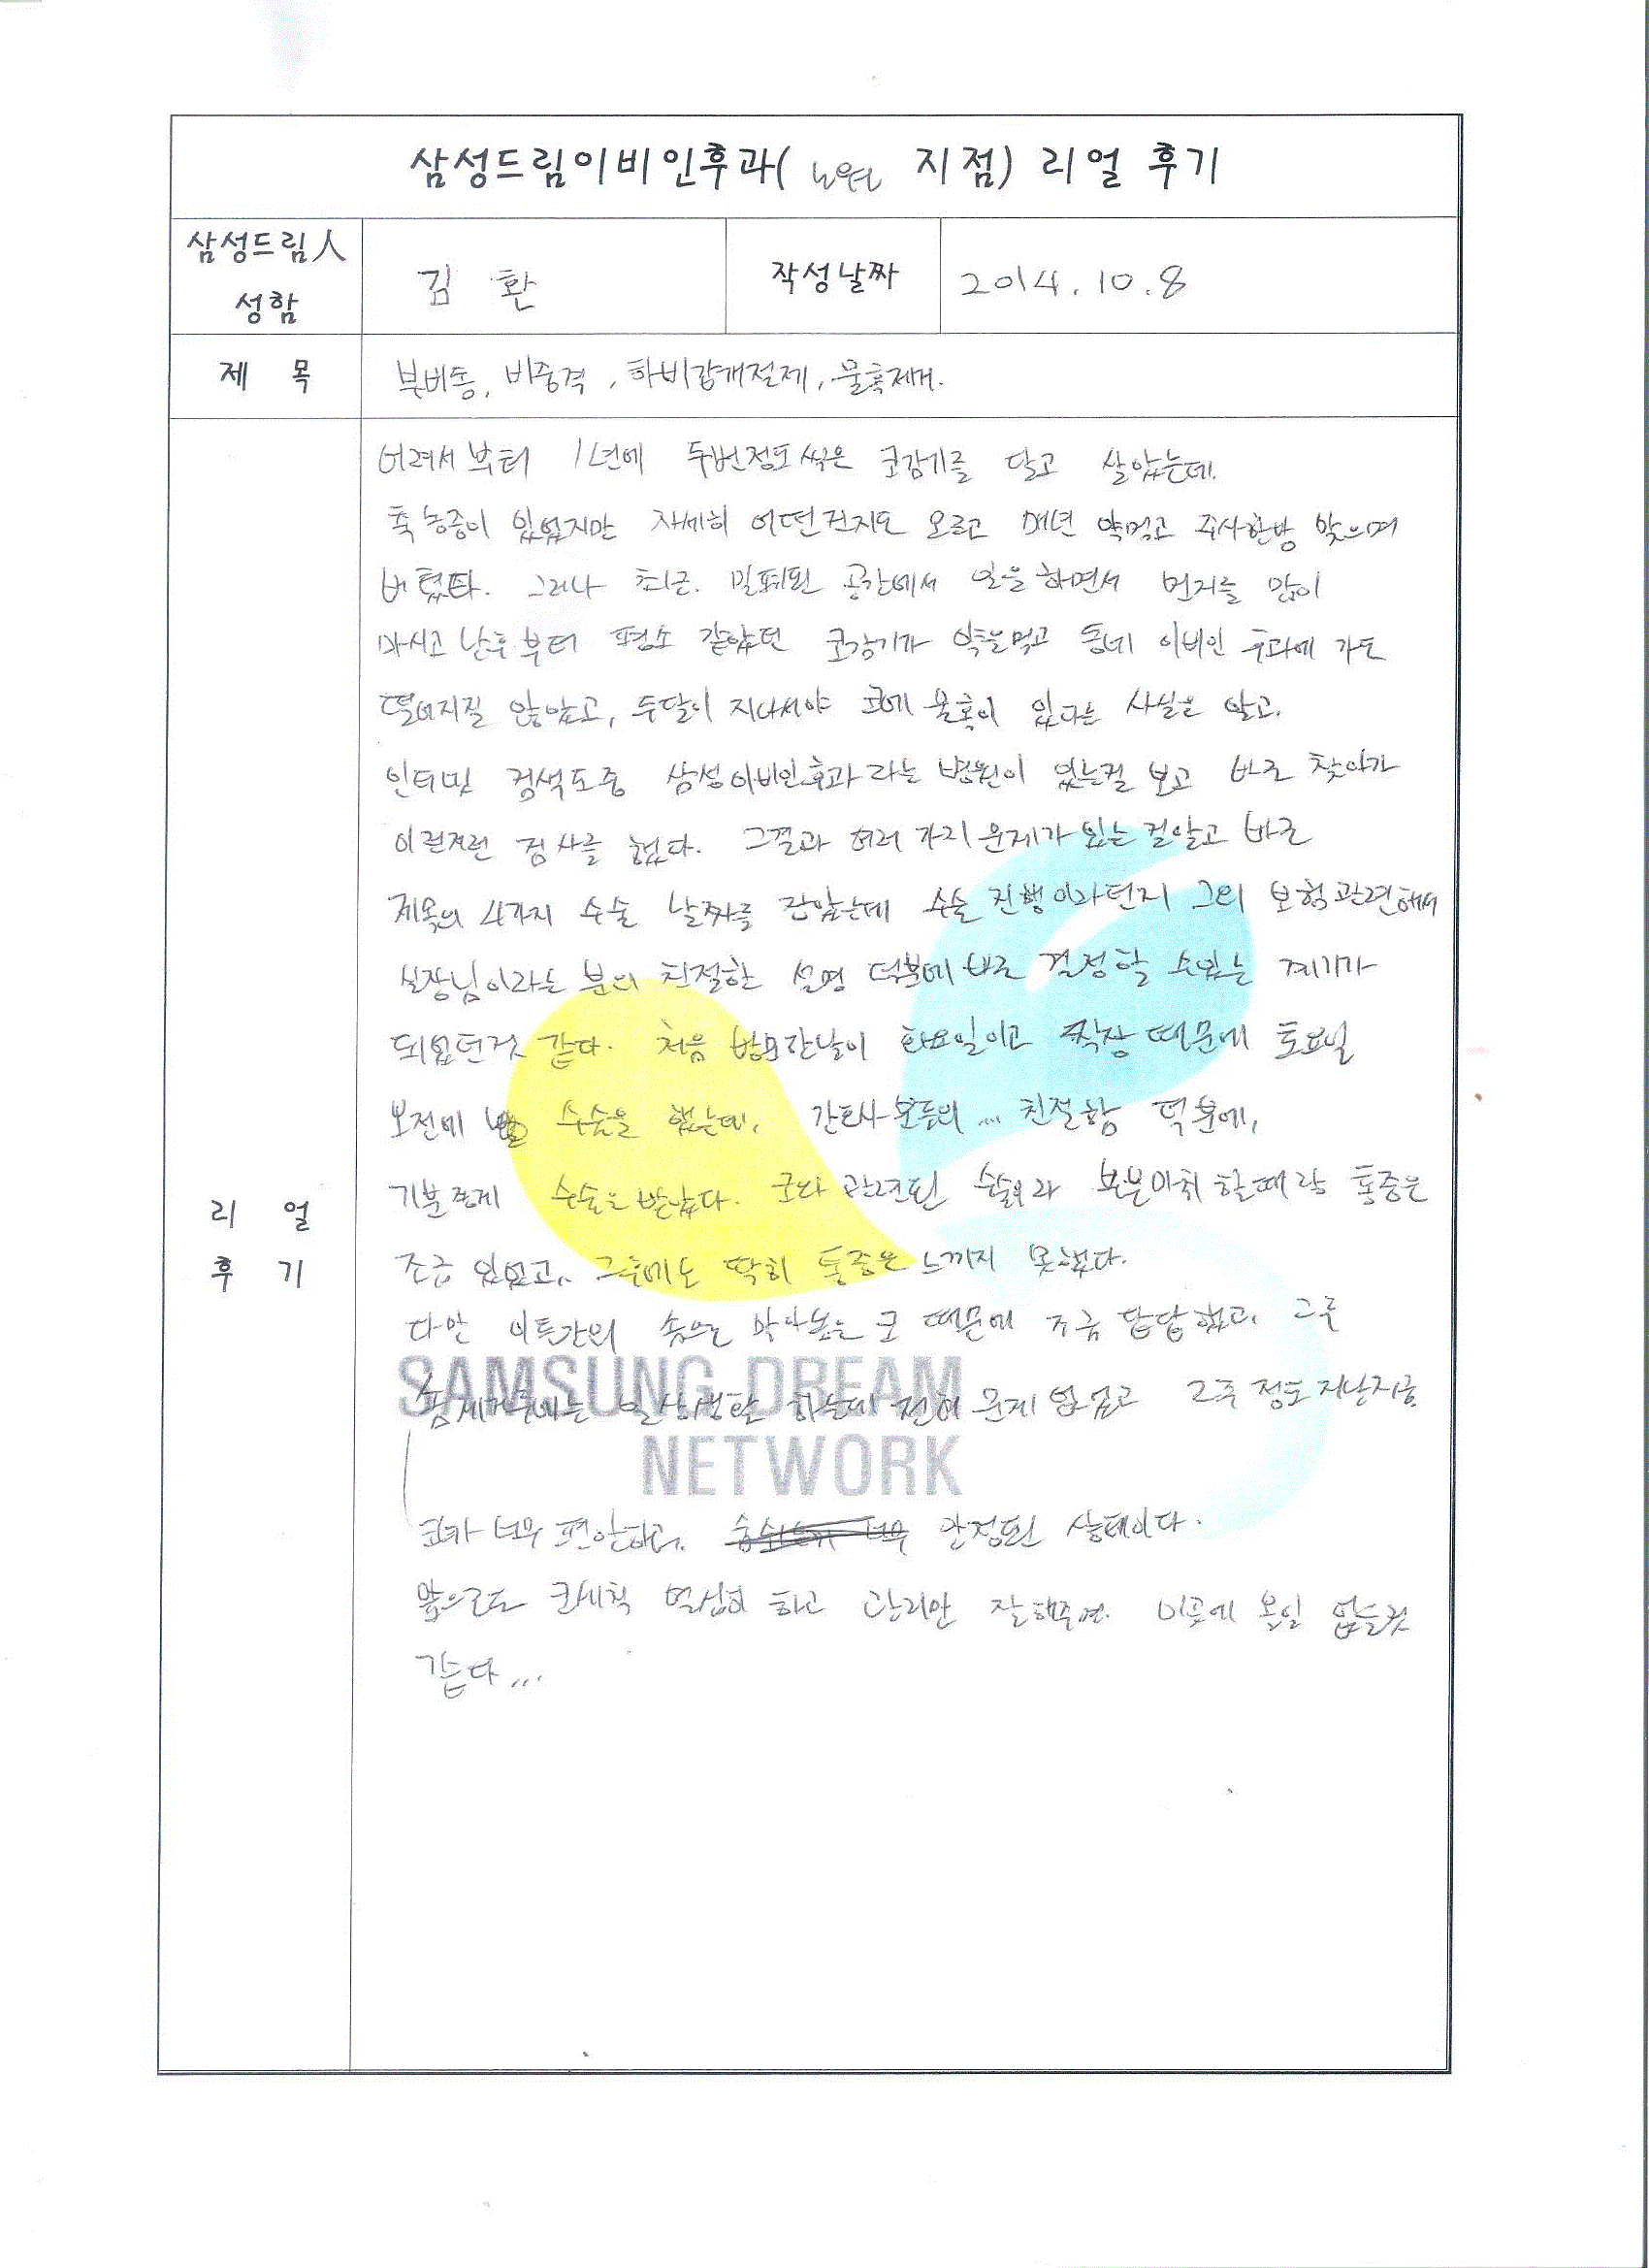 삼성드림이비인후과( 노원 지점) 리얼 후기
삼성드림人
성함
김 환
작성날짜
2014.10.8
제 목
부비동, 비중격, 하비갑개절제, 물혹제거.
어려서부터 1년에 두번정도씩은 코감기를 달고 살았는데.
축농증이 있었지만 자세히 어떤건지도 모르고 매년 약먹고 주사한방 맞으며
버텼다. 그러나 최근. 밀폐된 공간에서 일을 하면서 먼지를 많이
마시고 난후부터 평소 같았던 코감기가 약을먹고 동네 이비인후과에 가도
떨어지질 않았고, 두달이 지나서야 코에 물혹이 있다는 사실을 알고.
인터넷 검색도중 삼성이비인후과라는 병원이 있는걸 보고 바로 찾아가
이런저런 검사를 했다. 그결과 여러 가지 문제가 있는 걸알고 바로
제목의 4가지 수술 날짜를 잡았는데 수술 진행이라던지 그외 보험관련해서
실장님이라는 분의 친절한 설명 덕분에 바로 결정할 수있는 계기가
되었던것 같다. 처음 방문한날이 화요일이고 직장 때문에 토요일
오전에 수술을 했는데, 간호사분들의 ... 친절함 덕분에,
기분좋게 수술을 받았다. 코와 관련된 수술이라 부분마취 할때랑 통증은
조금 있었고, 그후에도 딱히 통증은 느끼지 못했다.
다만 이틀간의 솜으로 막아놓은 코 때문에 조금 답답했고, 그후
솜제거후에는 일상생활 하는데 전혀 문제 없었고 2주 정도 지난지금
코가 너무 편안하고, 안정된 상태이다.
앞으로도 코세척 열심히 하고 관리만 잘해주면 이곳에 올일 없을것
같다...
리 얼
후 기
SAMSUNG DREAM
NETWORK